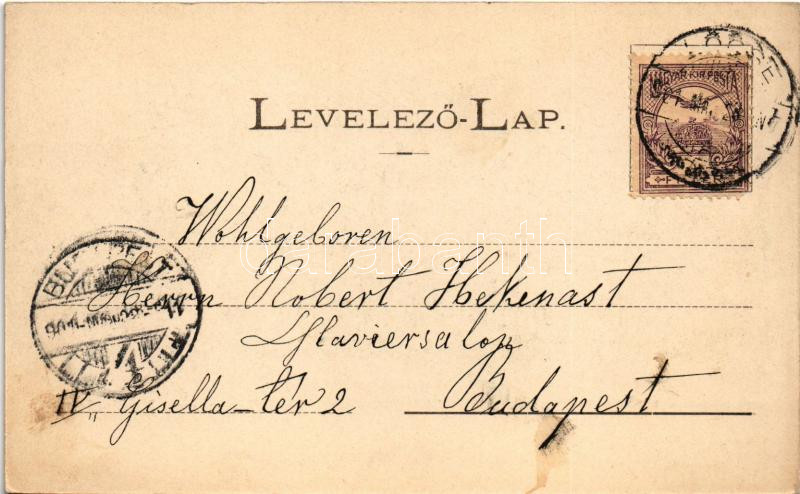 LEVELEZŐ-LAP.
LŐCSE
MAGYAR KIR. POSTA
Wohlgeboren
Herrn Robert Hekenast
Klaviersalon
IV. Gisella-tér 2 Budapest
BUDAPEST
darabanth